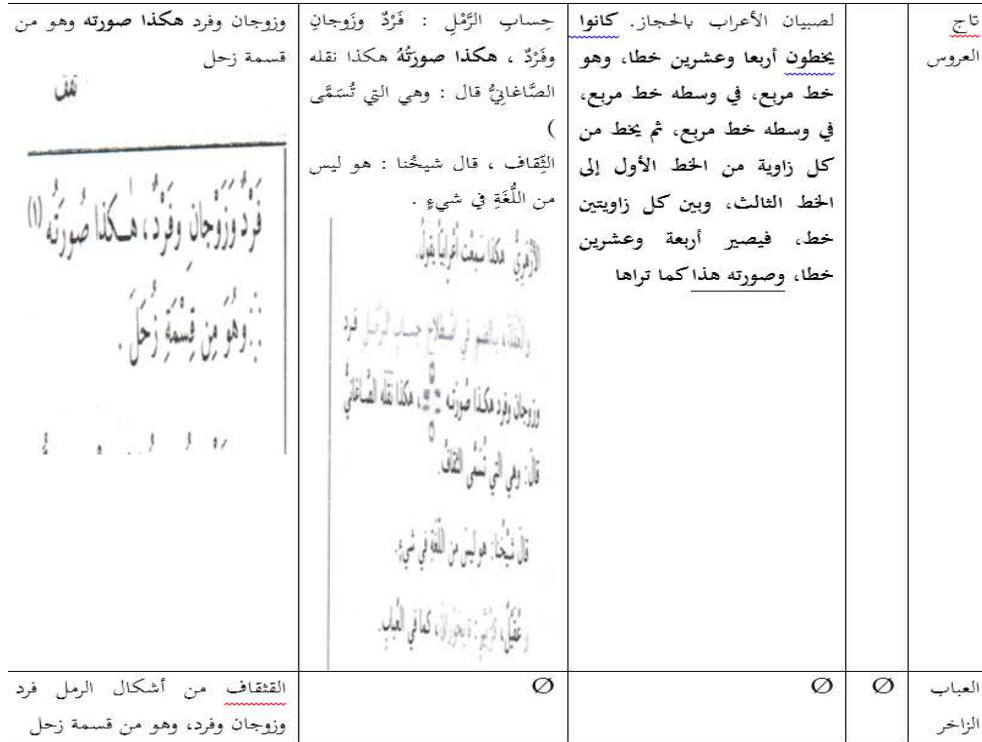 تاج
العروس
لصبيان الأعراب بالحجاز. كانوا
يخطون أربعا وعشرين خطا، وهو
خط مربع، في وسطه خط مربع،
في وسطه خط مربع، ثم يخط من
كل زاوية من الخط الأول إلى
الخط الثالث، وبين كل زاويتين
خط، فيصير أربعة وعشرين
خطا، وصورته هذا كما تراها
حِسابِ الرَّمْلِ : فَرْدٌ وزَوجانِ
وفَرْدٌ ، هكذا صورَتُهُ هكذا نقله
الصَّاغانِيُّ قال : وهي التي تُسَمَّى
)
الثِّقاف ، قال شيخُنا : هو ليس
من اللُّغَةِ في شيءٍ .
الأزهريّ هكذا سَمِعْت أعْرابيًّا يقولُ.
بالضم في اصْطِلاحِ حِسابِ الرَّمْلِ فرد
وزوجان وفرد هكذا صُورَته ، هكذا نَقَله الصَّاغانيُّ
قالَ: وهي التي تُسَمَّى الثقافُ.
قالَ شيْخُنا: هو ليسَ من اللّغَةِ في شيءٍ.
، كما في العُبابِ.
وزوجان وفرد هكذا صورته وهو من
قسمة زحل
ثقف
فَرْدٌ وَزَوْجانِ وفَرْدٌ، هٰكذا صُورَتُه (١)
وهُوَ مِن قِسْمَةِ زُحَلَ .
العباب
الزاخر
∅
∅
∅
القثقاف من أشكال الرمل فرد
وزوجان وفرد، وهو من قسمة زحل